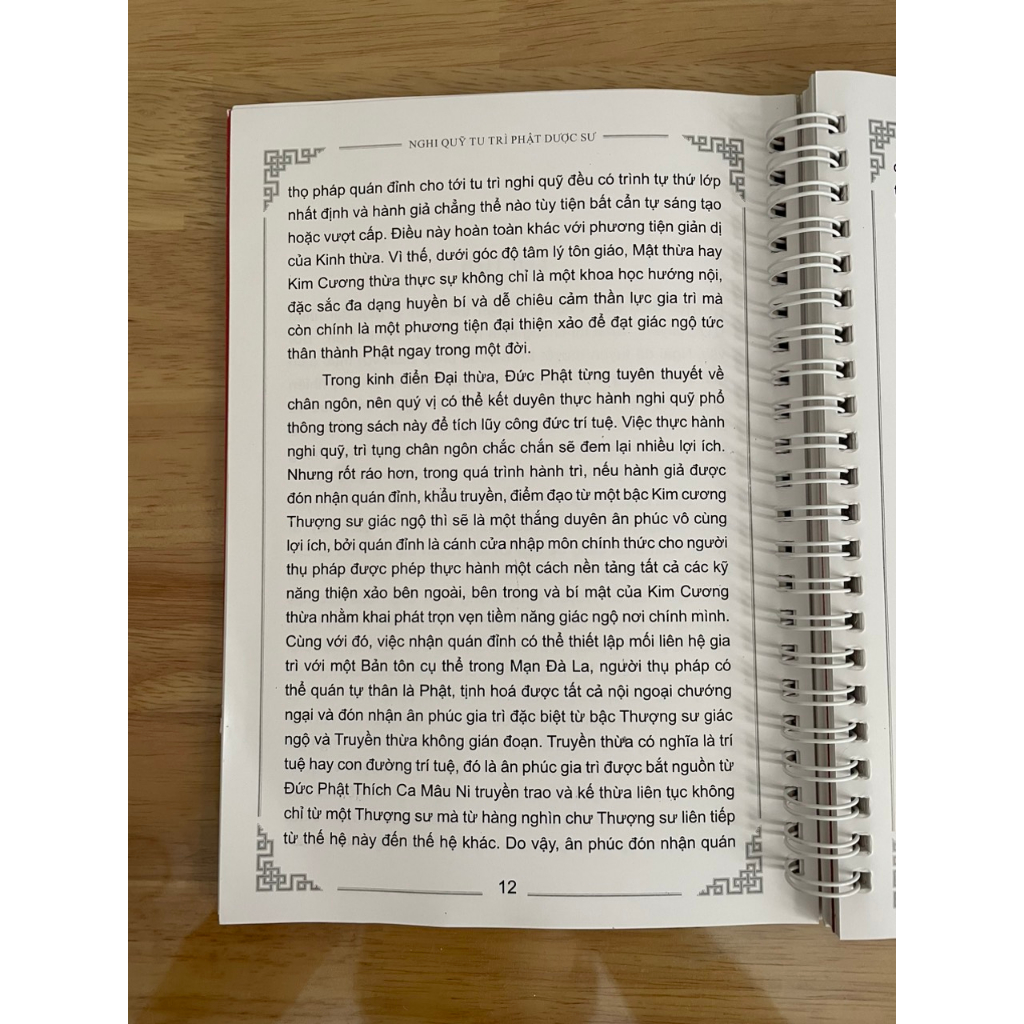 NGHI QUỸ TU TRÌ PHẬT DƯỢC SƯ
thọ pháp quán đỉnh cho tới tu trì nghi quỹ đều có trình tự thứ lớp
nhất định và hành giả chẳng thể nào tùy tiện bất cẩn tự sáng tạo
hoặc vượt cấp. Điều này hoàn toàn khác với phương tiện giản dị
của Kinh thừa. Vì thế, dưới góc độ tâm lý tôn giáo, Mật thừa hay
Kim Cương thừa thực sự không chỉ là một khoa học hướng nội,
đặc sắc đa dạng huyền bí và dễ chiêu cảm thần lực gia trì mà
còn chính là một phương tiện đại thiện xảo để đạt giác ngộ tức
thân thành Phật ngay trong một đời.
Trong kinh điển Đại thừa, Đức Phật từng tuyên thuyết về
chân ngôn, nên quý vị có thể kết duyên thực hành nghi quỹ phổ
thông trong sách này để tích lũy công đức trí tuệ. Việc thực hành
nghi quỹ, trì tụng chân ngôn chắc chắn sẽ đem lại nhiều lợi ích.
Nhưng rốt ráo hơn, trong quá trình hành trì, nếu hành giả được
đón nhận quán đỉnh, khẩu truyền, điểm đạo từ một bậc Kim cương
Thượng sư giác ngộ thì sẽ là một thắng duyên ân phúc vô cùng
lợi ích, bởi quán đỉnh là cánh cửa nhập môn chính thức cho người
thụ pháp được phép thực hành một cách nền tảng tất cả các kỹ
năng thiện xảo bên ngoài, bên trong và bí mật của Kim Cương
thừa nhằm khai phát trọn vẹn tiềm năng giác ngộ nơi chính mình.
Cùng với đó, việc nhận quán đỉnh có thể thiết lập mối liên hệ gia
trì với một Bản tôn cụ thể trong Mạn Đà La, người thụ pháp có
thể quán tự thân là Phật, tịnh hoá được tất cả nội ngoại chướng
ngại và đón nhận ân phúc gia trì đặc biệt từ bậc Thượng sư giác
ngộ và Truyền thừa không gián đoạn. Truyền thừa có nghĩa là trí
tuệ hay con đường trí tuệ, đó là ân phúc gia trì được bắt nguồn từ
Đức Phật Thích Ca Mâu Ni truyền trao và kế thừa liên tục không
chỉ từ một Thượng sư mà từ hàng nghìn chư Thượng sư liên tiếp
từ thế hệ này đến thế hệ khác. Do vậy, ân phúc đón nhận quán
12